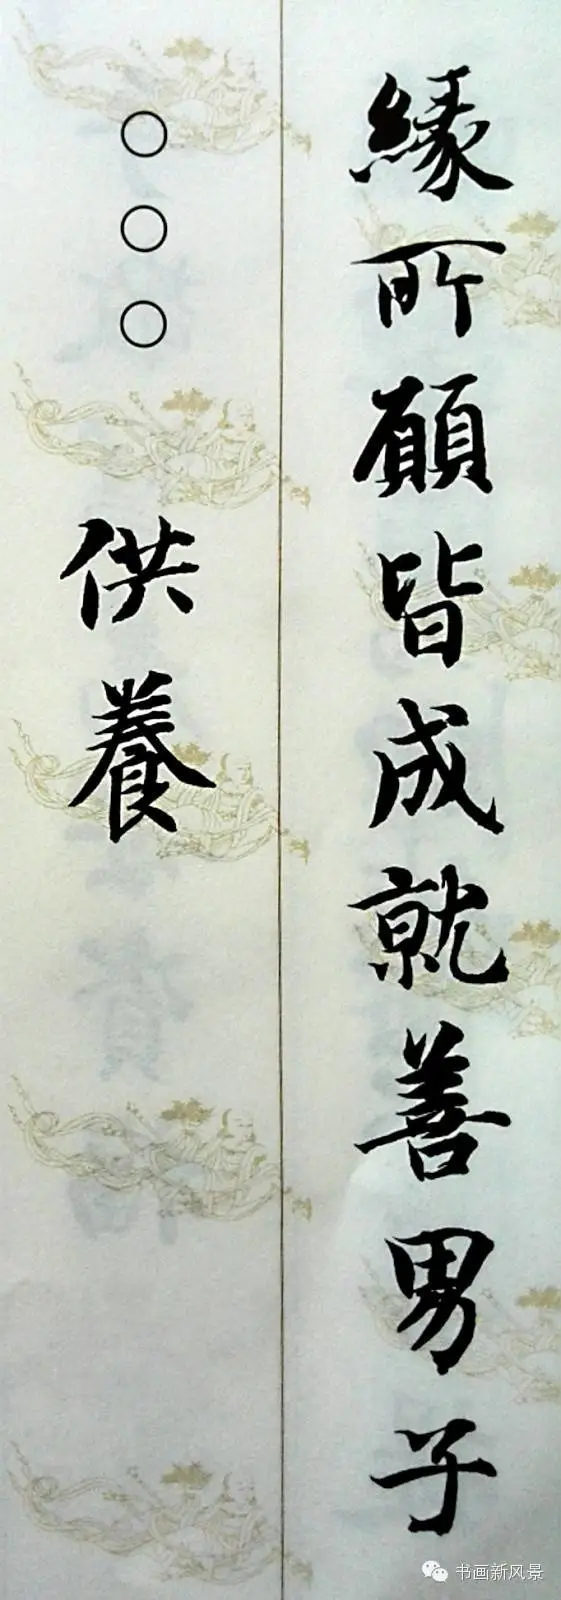 緣所願皆成就善男子
○○○供養
书画新风景